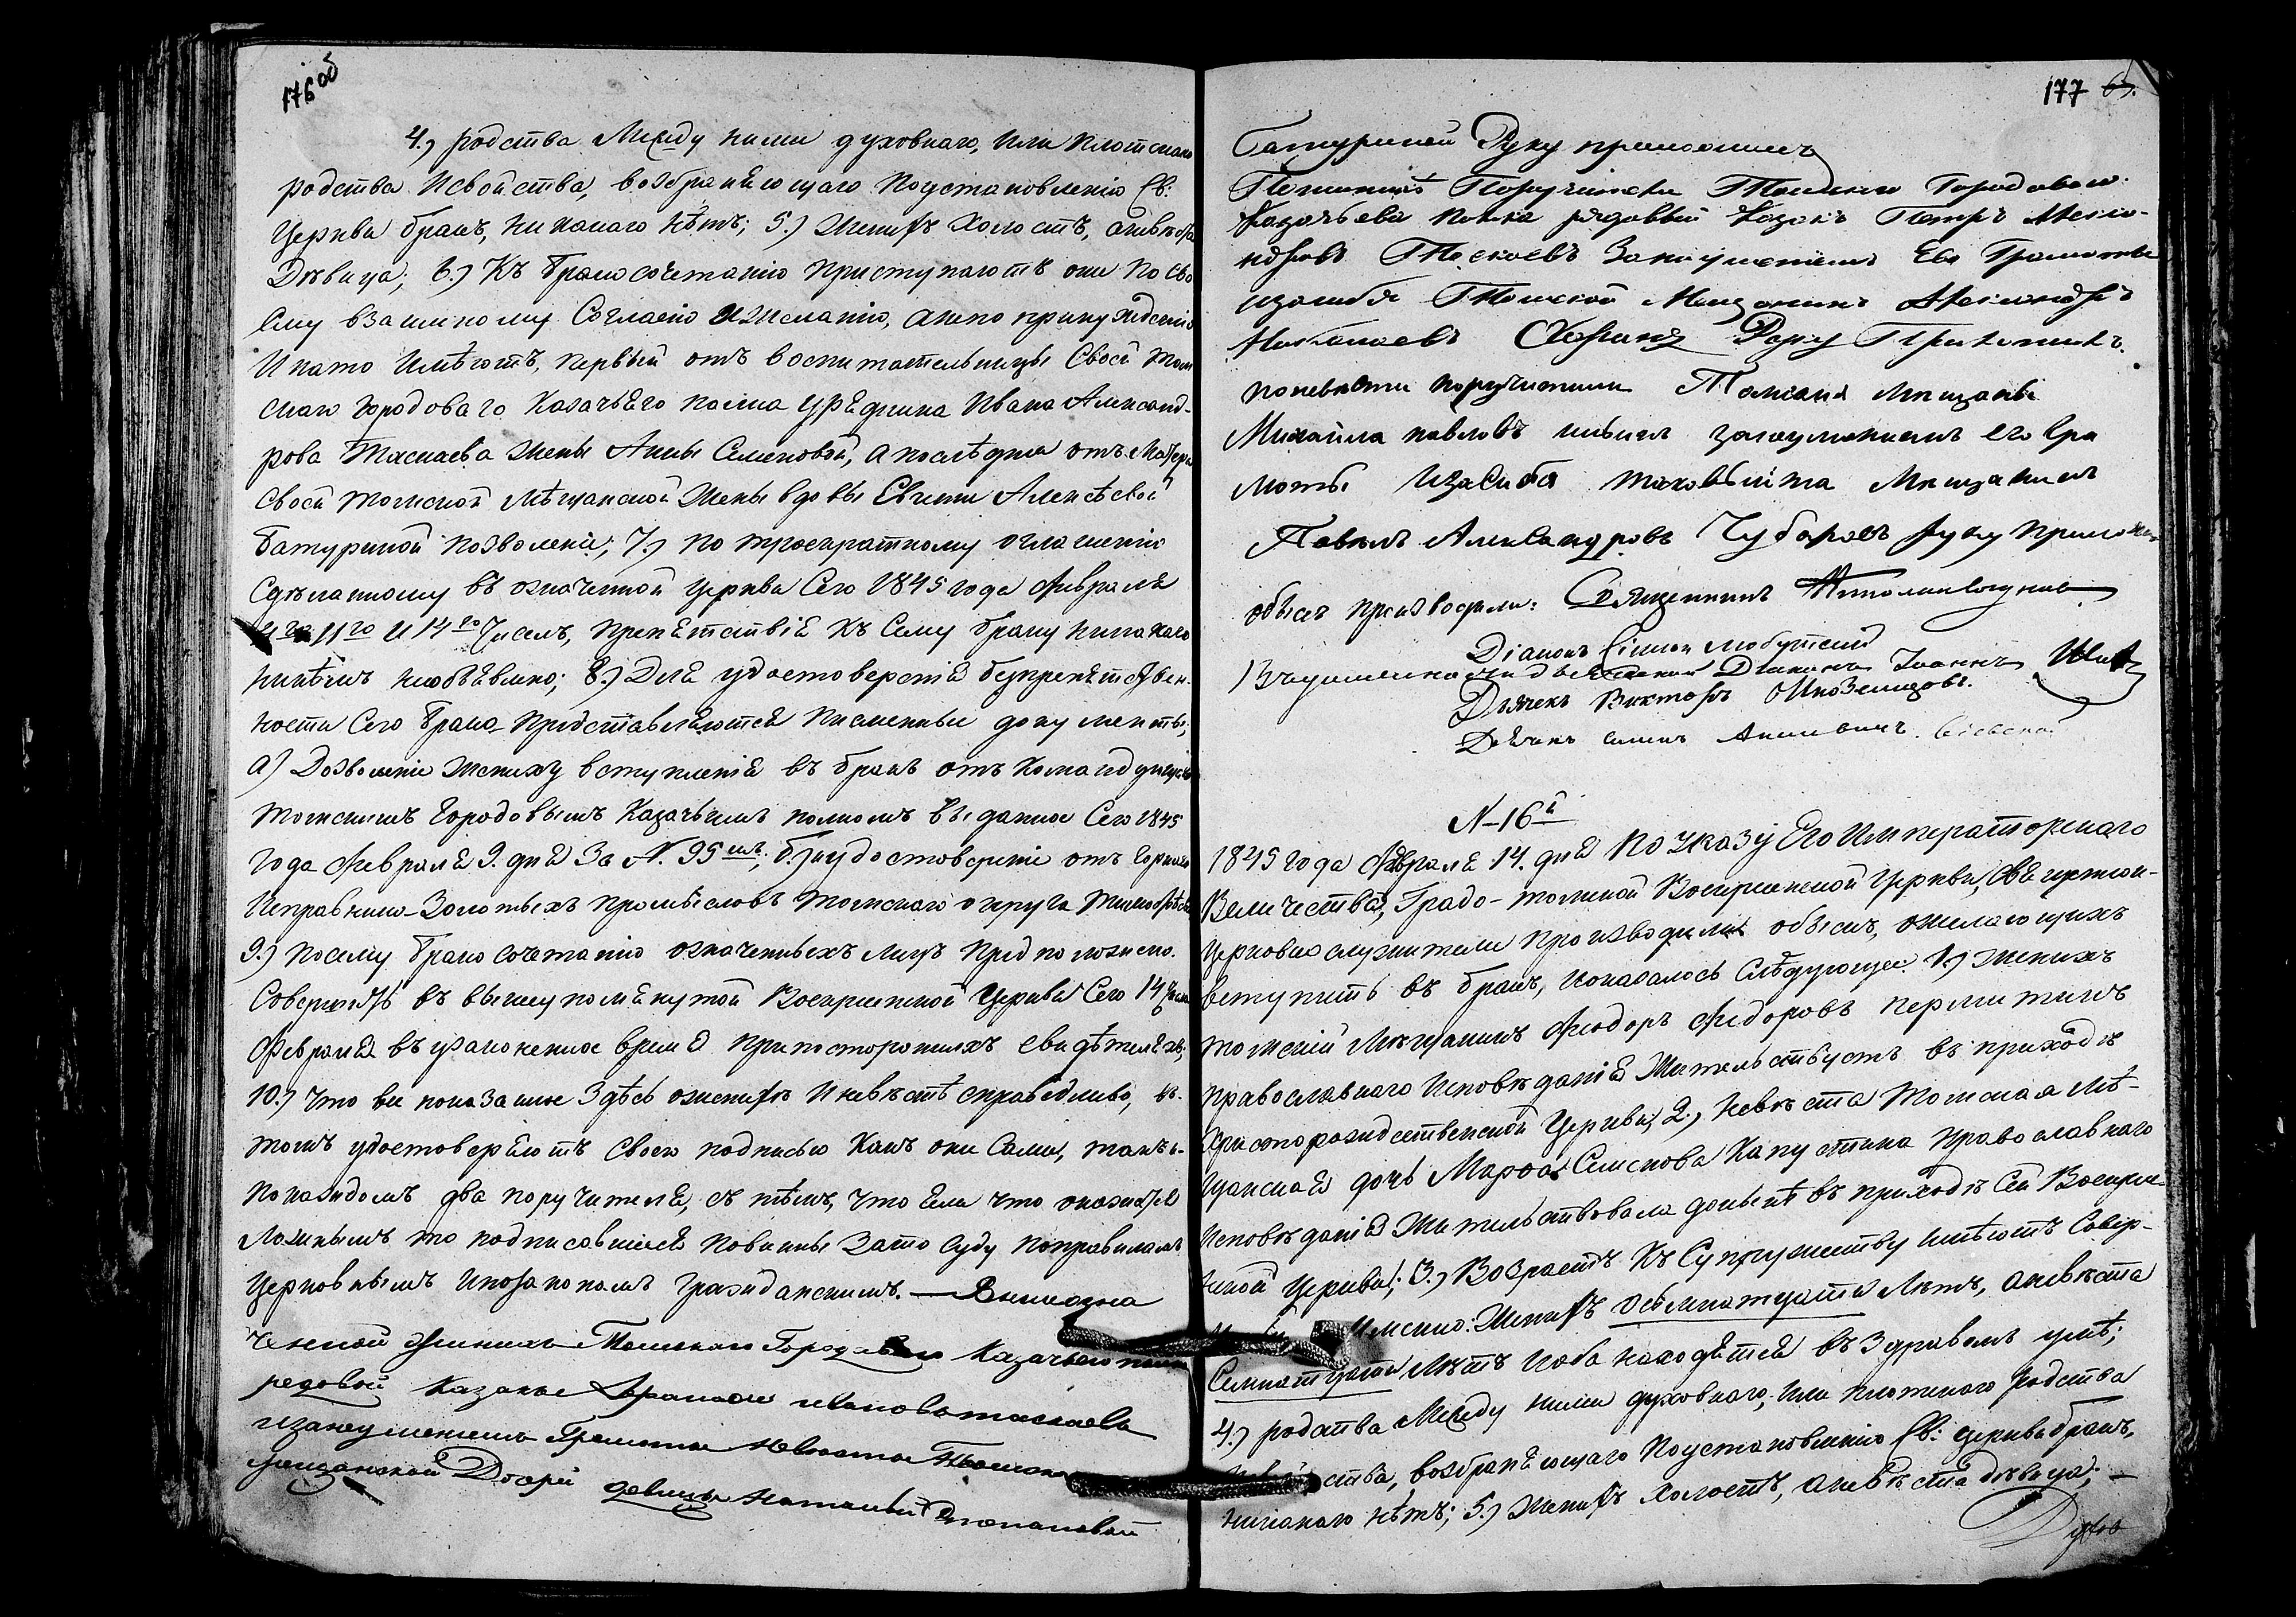 176 об
4.) родства между ними духовнаго, или плотскаго
родства и свойства, возбраняющаго по установленію Св:
Церкви бракъ, никакаго нѣтъ; 5.) Женихъ холостъ, а невѣста
Дѣвица; 6.) Къ бракосочетанію приступаютъ они по сво
ему взаимному согласію и желанію, а не по принужденію
и на то имѣютъ, первый отъ воспитательницы своей Том
скаго городоваго Казачьяго полка урядника Ивана Александ-
рова Таскаева жены Анны Семеновой, а послѣдняя отъ матери
своей томской мѣщанской жены вдовы Евгеніи Алексѣевой
Батуриной позволеніе; 7.) По троекратному оглашенію
сдѣланному въ означенной церкви сего 1845 года Февраля
11го и 14го чиселъ, препятствія къ сему браку никакаго
никѣмъ не объявлено; 8.) Для удостоверенія безпрепятствен-
ности сего брака представляются писменные документы;
а) Дозволеніе жениху вступленія въ бракъ отъ командующаго
томскимъ городовымъ Казачьимъ полкомъ выданное сего 1845
года Февраля 9. дня за №. 95мъ; б.) удостоверение отъ горнаго
исправника золотыхъ промысловъ томскаго округа
9.) Посему бракосочетанію означенныхъ лицъ предположено
совершить въ вышеупомянутой Воскресенской Церкви сего 14 числа
Февраля въ узаконенное время при постороннихъ свидѣтеляхъ;
10.) Что все показанное здѣсь о женихѣ и невѣстѣ справедливо, въ
томъ удостоверяютъ своею подписью какъ они сами, такъ и
по каждомъ два поручителя, съ тѣмъ, что если что окажется
ложнымъ то подписавшіеся повинны за то суду по правиламъ
Церковнымъ и по законамъ гражданскимъ. — Вышеозна
ченной жинихъ Томскаго Городоваго Казачьяго полка
редовой казакъ ивановъ таскаевъ
и за неуменіемъ Грамоте невеста Томска
мещанской Дочери девицы Наталіи Степановой
177 65.
Батуриной Руку приложилъ
По женихѣ Поручители Томскаго Городоваго
Казачьева полка рядовый Казакъ Петръ Алекса-
ндровъ Таскаевъ За неуменіемъ Его Грамоты
и за себя Томской Мещанинъ Александръ
Николаевъ Руку Приложилъ.
По невести поручители Томскія мищанъ
Михаила павловъ за неуменіемъ его гра
моты и за себя таковыйжа Мищанинъ
Павелъ Александровъ Чубаровъ руку приложилъ
обыскъ производили: Священникъ
Діаконъ Симеон
Діаконъ Іоаннъ
Дьячекъ Викторъ Иноземцовъ.
Дьячекъ
№ 16й
1845 года Февраля 14. дня По Указу Его Императорскаго
Величества, Градо-томской Воскресенской Церкви, Священно-
церковнослужители производили обыскъ, о желающихъ
вступить въ бракъ, и оказалось слѣдующее. 1.) Женихъ
томскій мѣщанинъ Феодоръ Федоровъ Пермитинъ
православнаго исповѣданія жительствуетъ въ приходѣ
Христорождественской Церкви; 2.) Невѣста томская мѣ-
щанская дочь Марфа Семенова Капустина православнаго
исповѣданія жительствовала донынѣ въ приходѣ сей Воскресе-
нской Церкви; 3.) Возрастъ къ супружеству имѣютъ совер-
именно: женихъ осьмнатцати лѣтъ, а невѣста
Семнатцати лѣтъ и оба находятся въ здравомъ умѣ;
4.) родства между ними духовнаго, или плотскаго родства
и свойства, возбраняющаго по установленію Св: церкви бракъ,
никакаго нѣтъ; 5.) Женихъ холостъ, а невѣста дѣвица; —